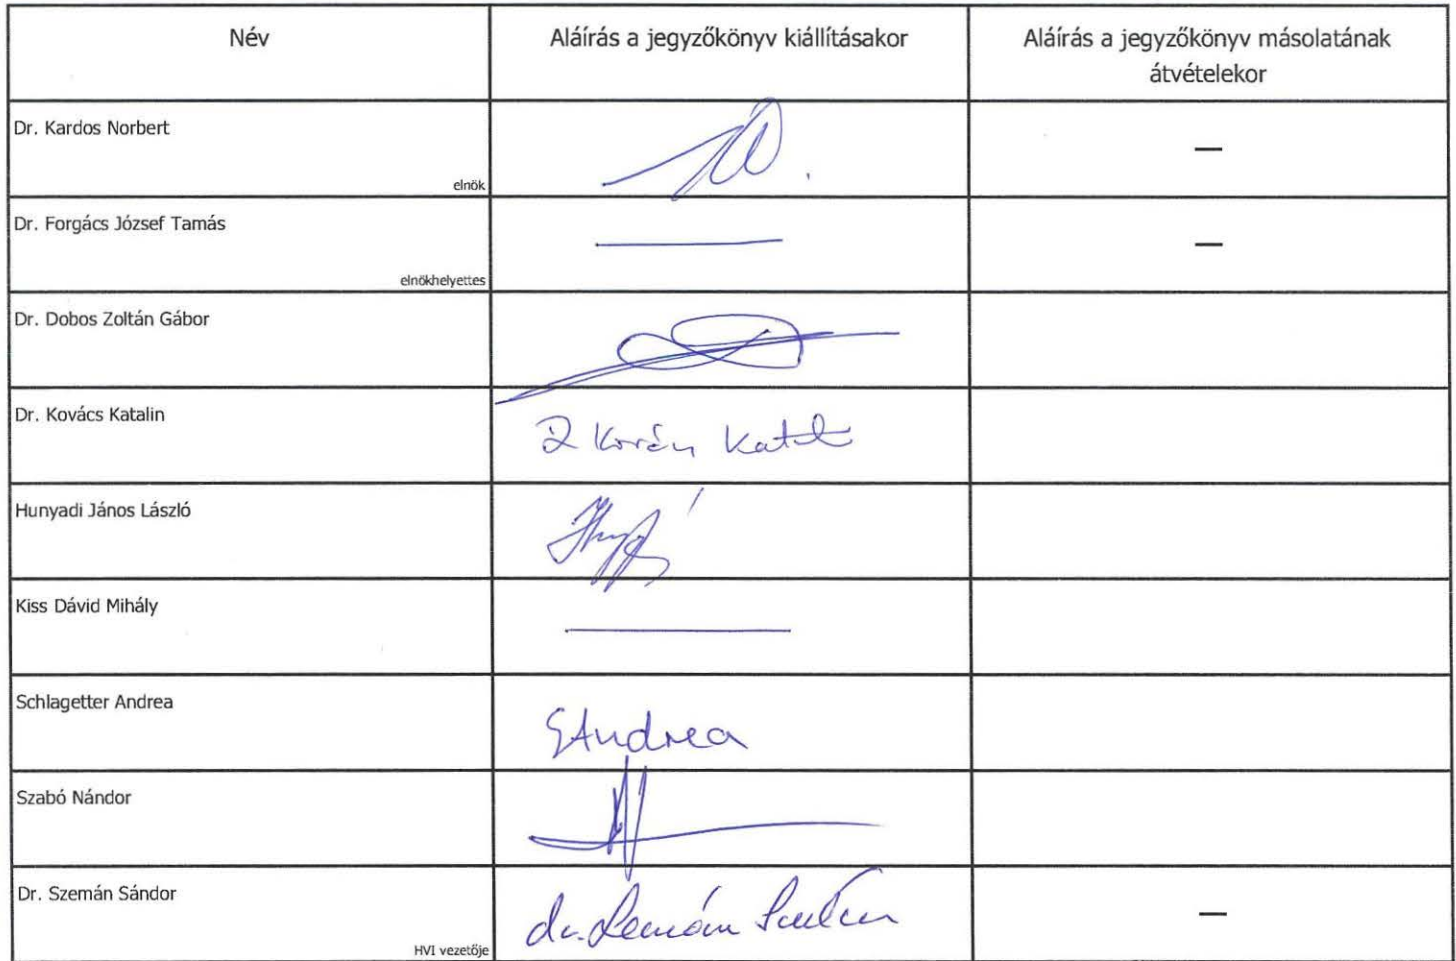 Név
Aláírás a jegyzőkönyv kiállításakor
Aláírás a jegyzőkönyv másolatának
átvételekor
Dr. Kardos Norbert
elnök
—
Dr. Forgács József Tamás
elnökhelyettes
—
Dr. Dobos Zoltán Gábor
Dr. Kovács Katalin
Hunyadi János László
Kiss Dávid Mihály
Schlagetter Andrea
SAndrea
Szabó Nándor
Dr. Szemán Sándor
HVI vezetője
—